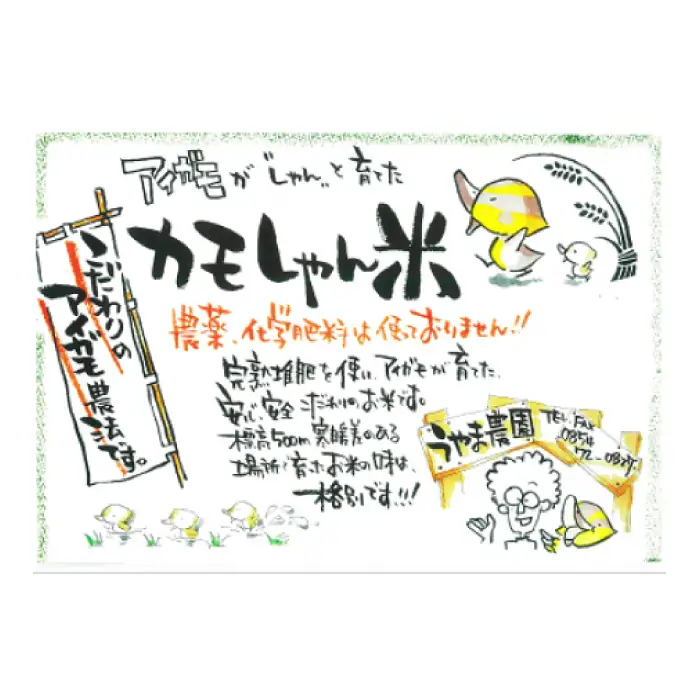 アイガモが"しゃん"と育てた
カモしゃん米
こだわりの
アイガモ農法です。
農薬、化学肥料は使っておりません!!
完熟堆肥を使い、アイガモが育てた、
安心、安全こだわりのお米です。
標高500m寒暖差のある
場所で育ったお米の味は、
格別です!!!
うやま農園
TEL・FAX
0854